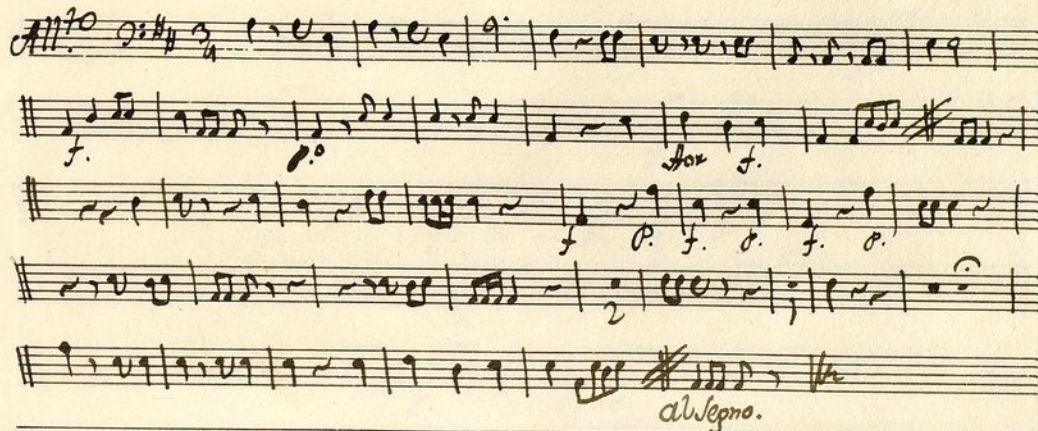 All.to 3 4
f. p.o for f.
f p. f. p. f. p.
2 1
al Segno.